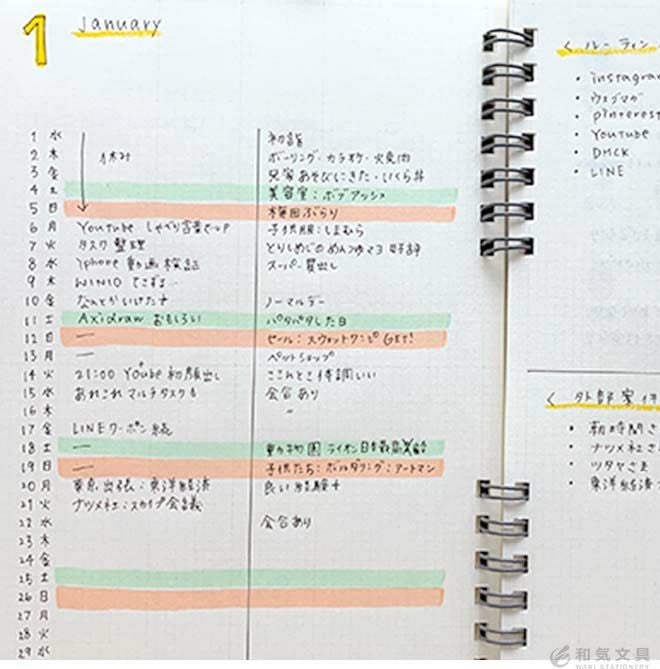 1 January
1 水 初詣
2 木 休み ボーリング・カラオケ・火焼肉
3 金 兄家あそびにきた・いくら丼
4 土 美容室:ボブアッシュ
5 日 梅田ぶらり
6 月 Youtube しゃべり言葉でUP 子供服:しまむら
7 火 タスク整理 とりしめじのめんつゆマヨ 好評
8 水 iphone 動画検証 スーパー買出し
9 木 WIN10 てこずる
10 金 なんとかいけた ノーマルデー
11 土 Axidraw おもしろい バタバタした日
12 日 ー セール:スウェットワンピ GET!
13 月 ー ペットショップ
14 火 21:00 Youtube 初顔出し ここんとこ体調いい
15 水 あれこれマルチタスク 会合あり
16 木 〃
17 金 LINEクーポン 続
18 土 ー 動物園 ライオン日本最高齢
19 日 ー 子供たち:ボルダリング:アートマン
20 月 東京出張:東洋経済 良い経験
21 火 ナツメ社:スカイプ会議
22 水 会合あり
23 木
24 金
25 土
26 日
27 月
28 火
29 水
<ルーティン
・instagram
・ウェブマガ
・pinterest
・Youtube
・DMCK
・LINE
<外部案件
・朝時間さ
・ナツメ社さ
・ツタヤさま
・東洋経済
和気文具
WAKI STATIONERY